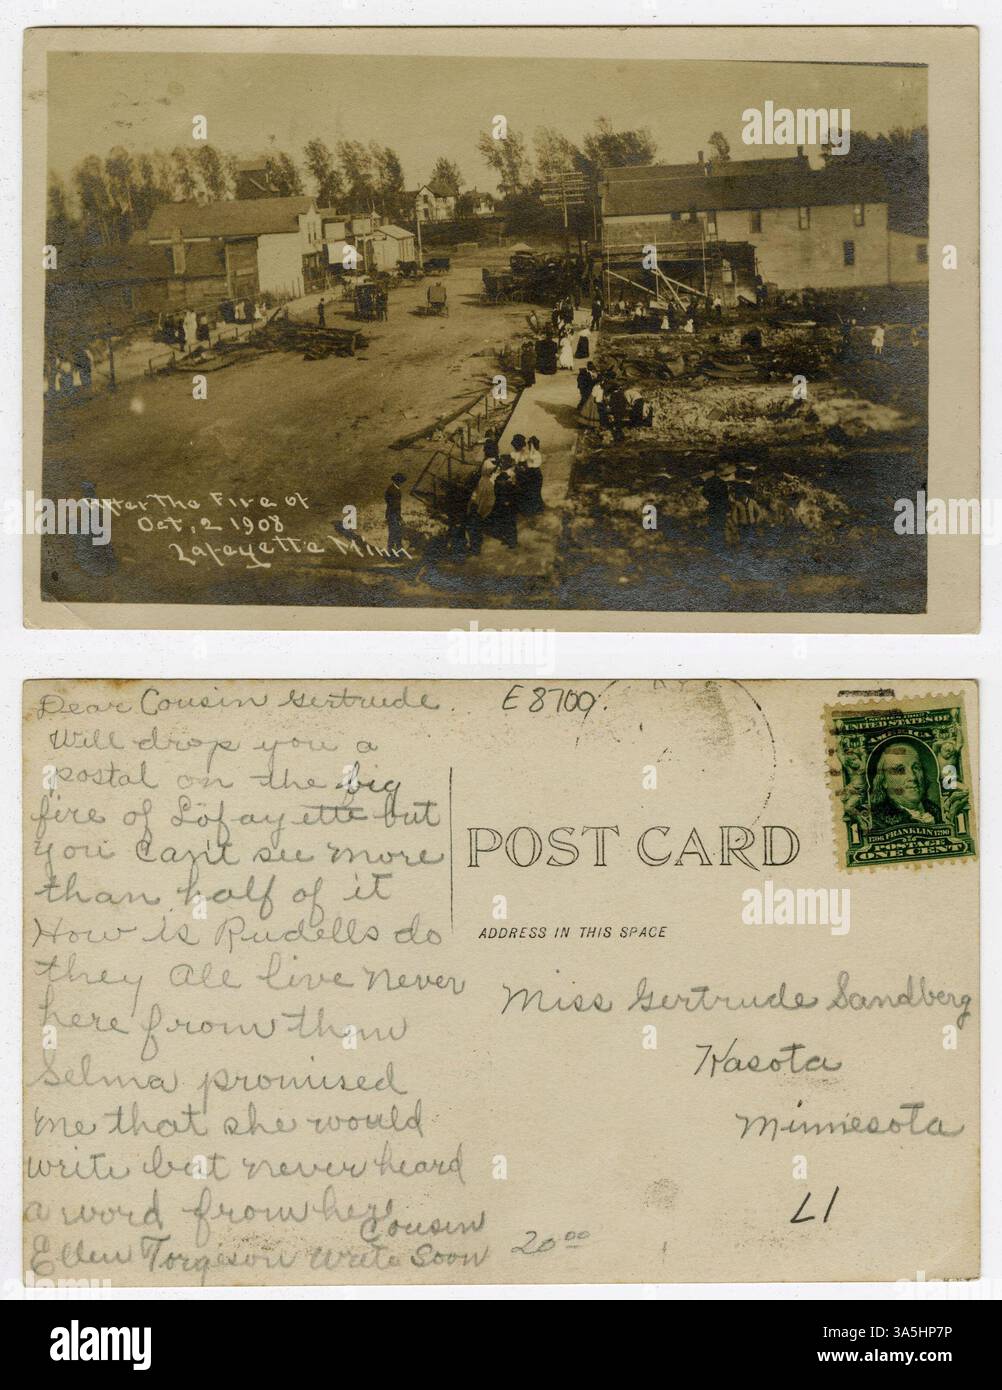 After The Fire of
Oct, 2 1908
Lafeyette Minn
Dear Cousin Gertrude.
Will drop you a
postal on the big
fire of Lofayette but
you can't see more
than half of it
How is Rudells do
they all live never
here from them
Selma promised
me that she would
write but never heard
a word from here
Cousin
Ellen Torgeson Write Soon
E 8700.
SERIES 1902
UNITED STATES OF
AMERICA
1706 FRANKLIN 1790
1 POSTAGE 1
ONE CENT
POST CARD
ADDRESS IN THIS SPACE
Miss Gertrude Sandberg
Kasota
Minnesota
L1
20.00
alamy
Image ID: A35HP7P
www.alamy.com